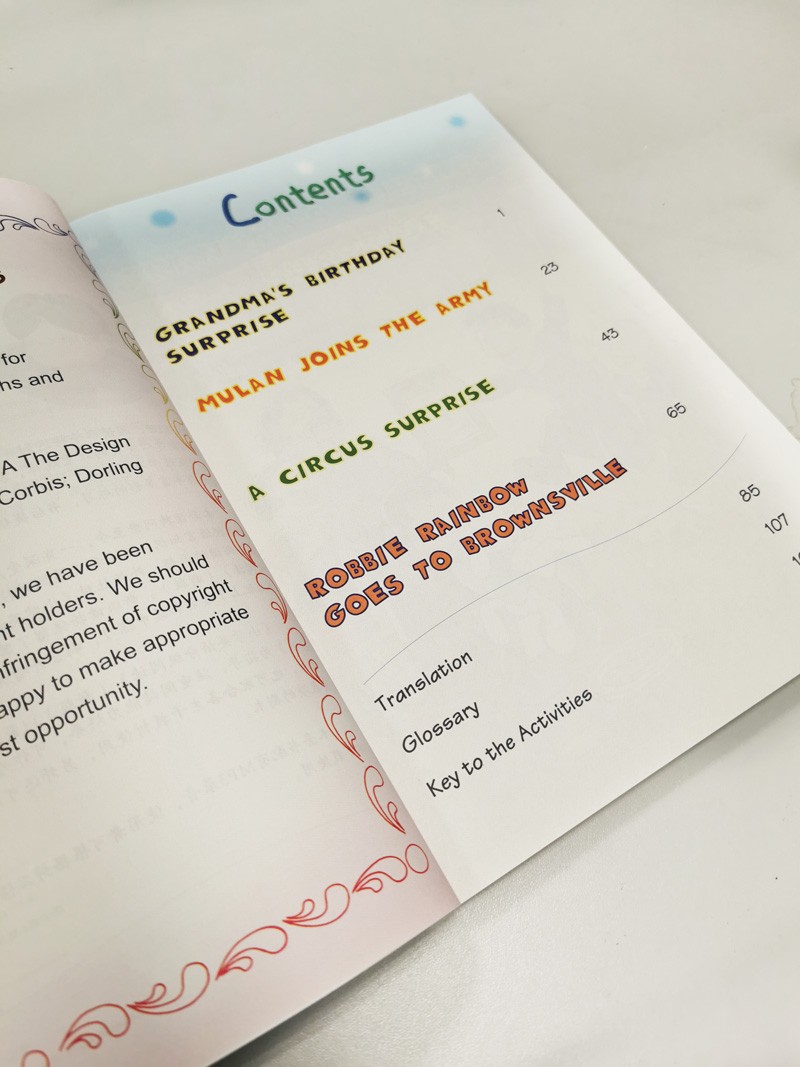 for
hs and
A The Design
Corbis; Dorling
, we have been
nt holders. We should
nfringement of copyright
appy to make appropriate
st opportunity.
Contents
GRANDMA'S BIRTHDAY
SURPRISE
1
MULAN JOINS THE ARMY
23
A CIRCUS SURPRISE
43
ROBBIE RAINBOW
GOES TO BROWNSVILLE
65
Translation
85
Glossary
107
Key to the Activities